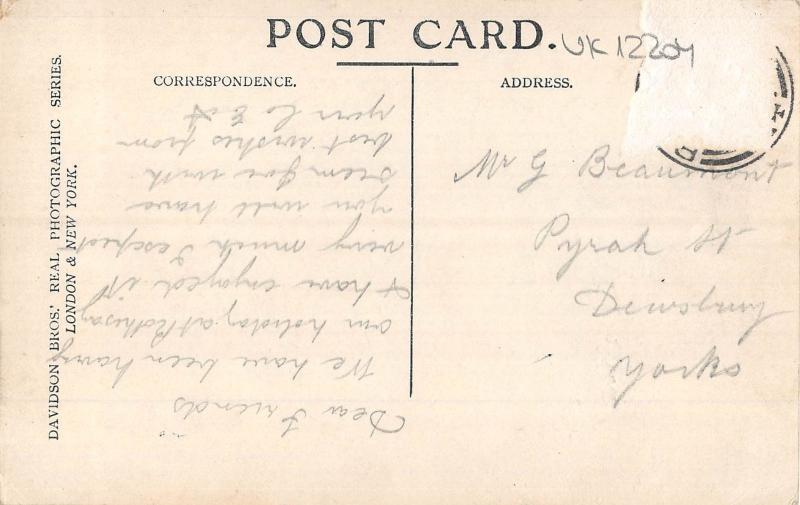 POST CARD.
UK12204
CORRESPONDENCE.
ADDRESS.
DAVIDSON BROS.' REAL PHOTOGRAPHIC SERIES.
LONDON & NEW YORK.
Mr G Beaumont
Pyrah St
Dewsbury
Yorks
Dear Friends
We have been having
our holiday at
& have enjoyed it
very much I expect
you will have
seem
best wishes from
yours